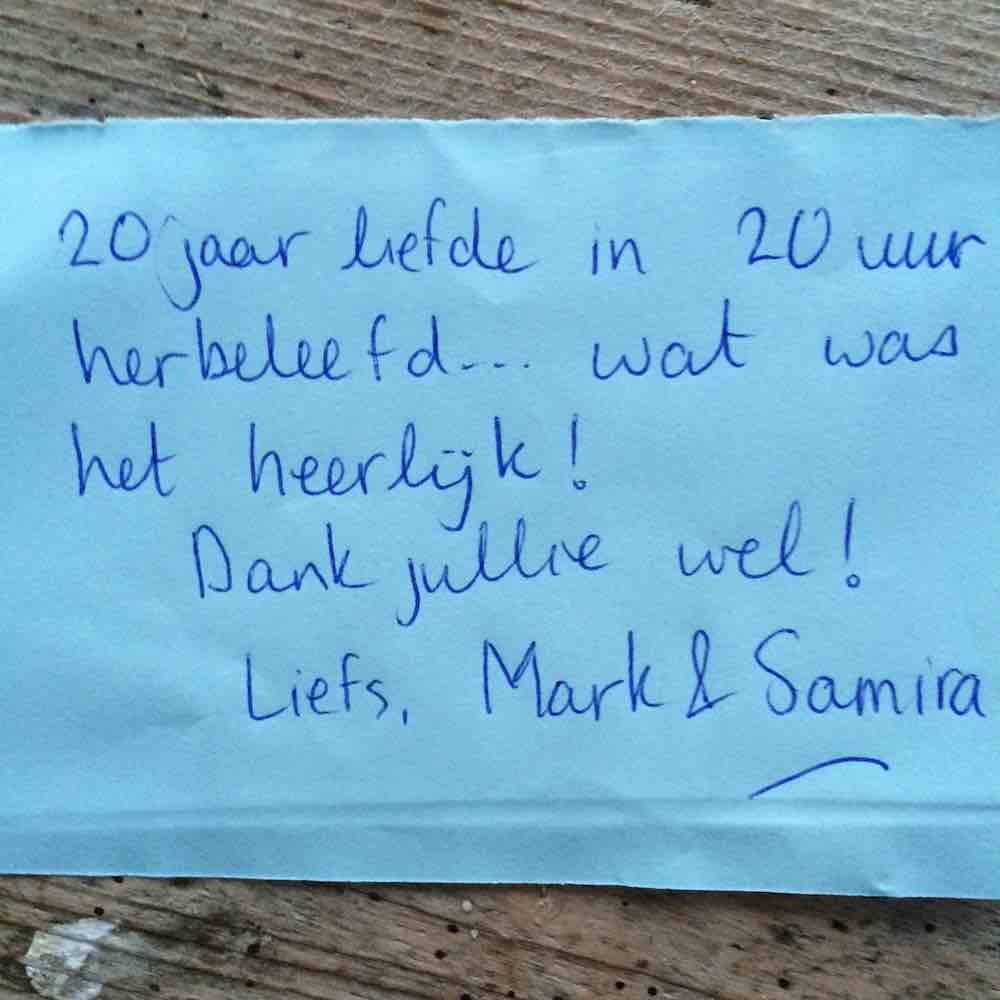 20 jaar liefde in 20 uur
herbeleefd... wat was
het heerlijk!
Dank jullie wel!
Liefs, Mark & Samira